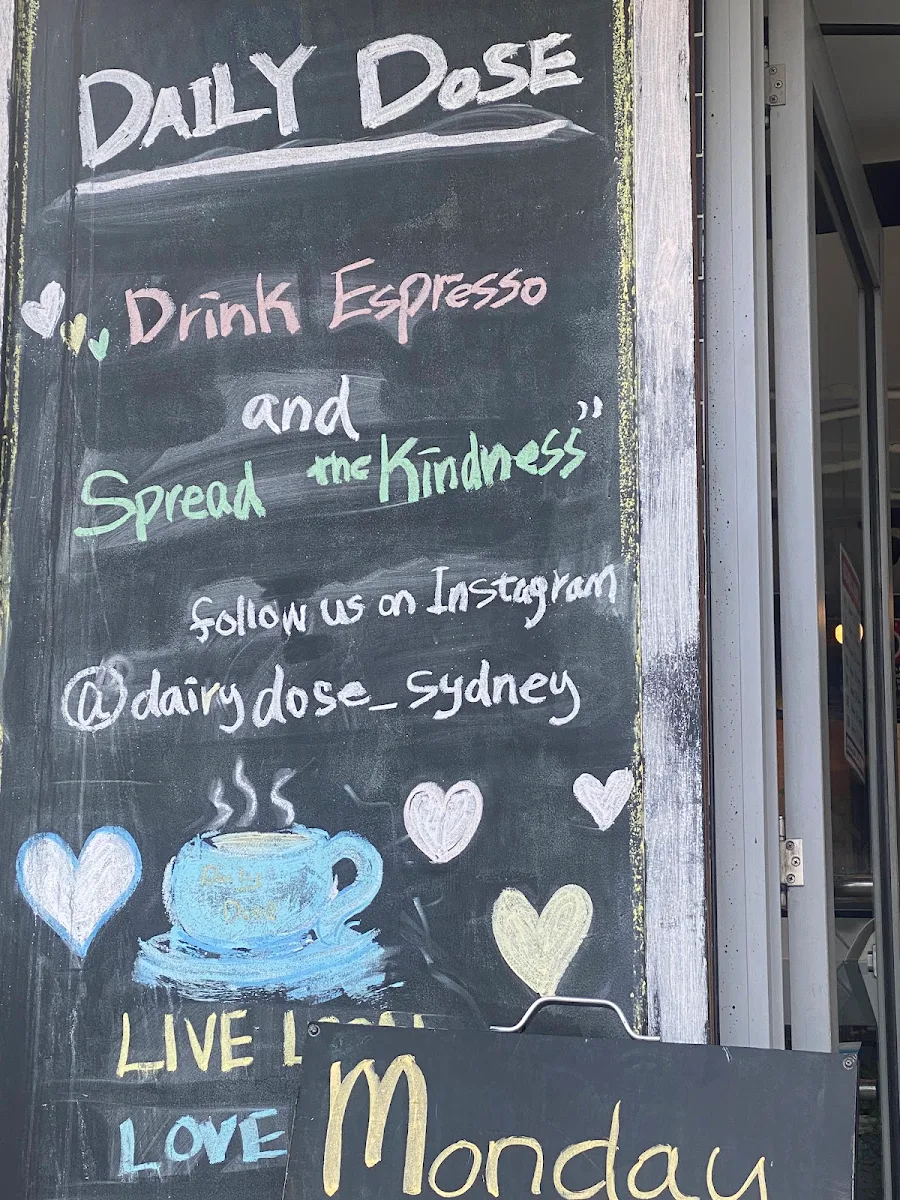 DAILY DOSE
Drink Espresso
and
Spread the Kindness"
follow us on Instagram
@dairydose_sydney
Daily
Dose
LIVE
LOVE
Monday